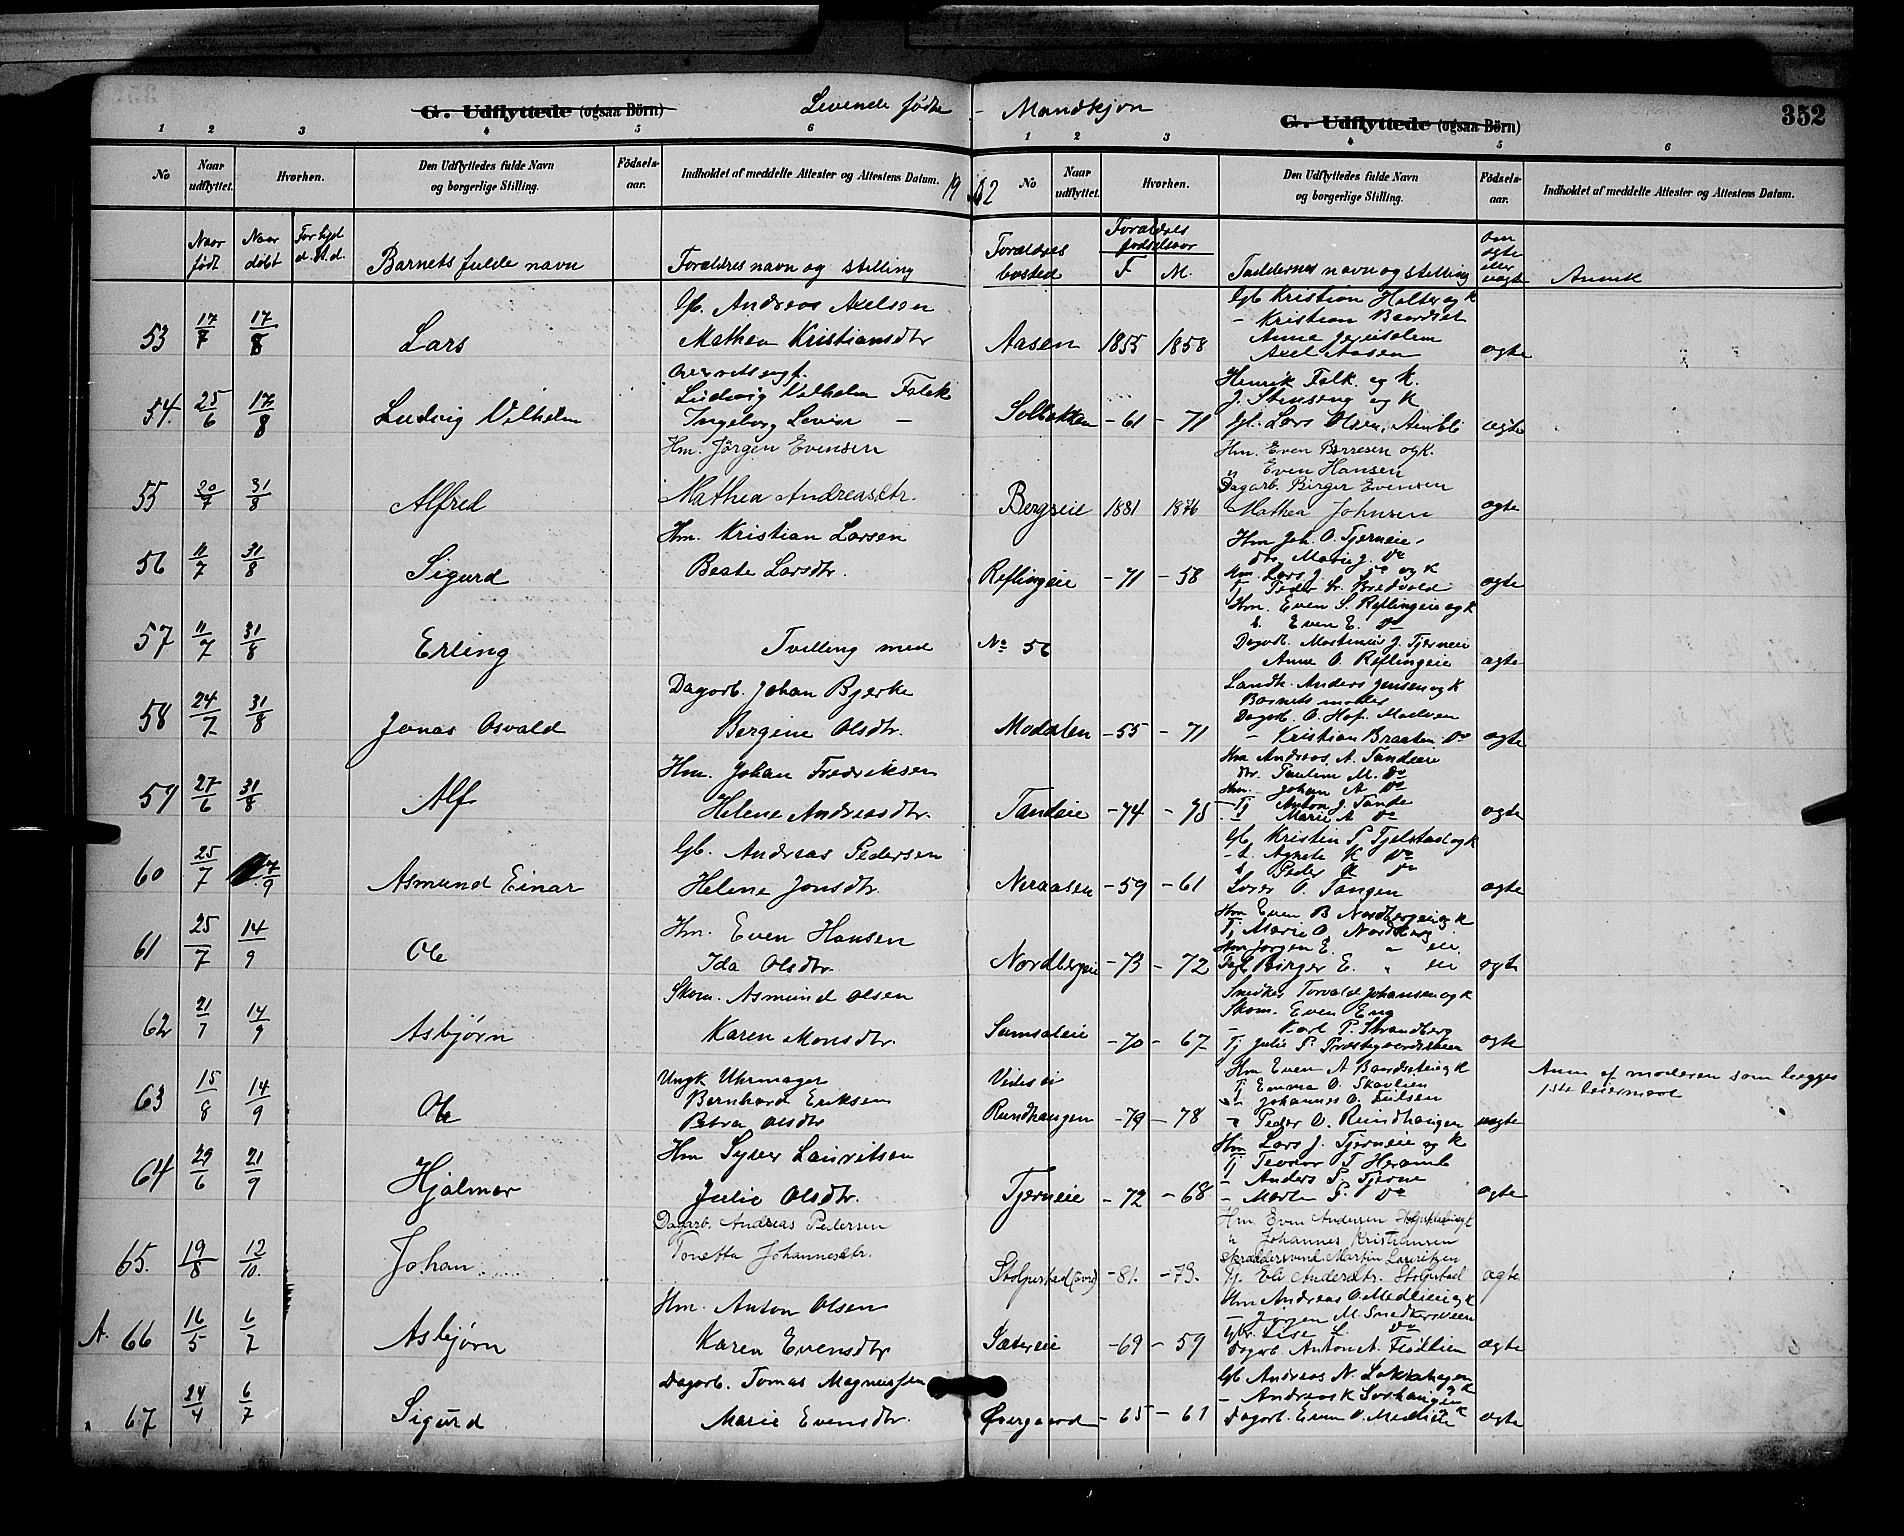 G. Udflyttede (ogsaa Börn)
Levende fødte - Mandkjøn
G. Udflyttede (ogsaa Börn)
352
1 2 3 4 5 6
1 2 3 4 5 6
No
Naar udflyttet.
Hvorhen.
Den Udflyttedes fulde Navn og borgerlige Stilling.
Födsels-aar.
Indholdet af meddelte Attester og Attestens Datum.
1902
No
Naar udflyttet.
Hvorhen.
Den Udflyttedes fulde Navn og borgerlige Stilling.
Födsels-aar.
Indholdet af meddelte Attester og Attestens Datum.
Naar født
Naar døbt
Barnets fulde navn
Forældres navn og stilling
Forældres bosted
Forældres fødselsaar
F. M.
Faddernes navn og stilling
ægte eller uægte
Anmk
53 17/7 17/8 Lars
Gb. Andreas Axelsen
Mathea Kristiansdtr
Aasen 1855 1858
Gb Kristian Holter og k
- Kristian Baardset
Anne Jerusalem
Axel Aasen
ægte
54. 25/6 17/8 Ludvig Vilhelm
Overretssagf.
Ludvig Vilhelm Falck
Ingeborg Levine -
Solbakken -61 -71
Henrik Falk og K.
J. Stenseng og K
Gb. Lars Olsen, Amble
ægte
55 20/7 31/8 Alfred
Hm. Jörgen Evensen
Mathea Andreasdtr.
Bergseie 1881 1876
Hm. Even Børresen og k.
" Even Hansen
Dagarb. Birger Evensen
Mathea Johnsen
ægte
56 11/7 31/8 Sigurd
Hm. Kristian Larsen
Beate Larsdtr.
Reflingeie -71 -58
Hm Joh. O. Tjerneie,
dtr. Marie J. do
Hm. Lars J. do og k
Tj Peder Bredvold
ægte
57 11/7 31/8 Erling
Tvilling med No 56
Hm. Even S. Reflingeie og k
s. Even E. do
Dagarb. Martinius J. Tjerneie
Anne O. Reflingeie
ægte
58 24/7 31/8 Jonas Osvald
Dagarb. Johan Bjerke
Bergine Olsdtr.
Modalen -55 -71
Landh. Anders Jensen og k
Barnets moder
Dagarb. O. Hof. Moelven
- Kristian Braaten do
ægte
59 27/6 31/8 Alf
Hm. Johan Fredriksen
Helene Andreasdtr.
Tandeie -74 -75
Hm Andreas A. Tandeie
dtr. Pauline M. do
Hm. Johan A do
Tj Anton J. Tande
- Marie A do
ægte
60 25/7 7/9 Asmund Einar
Gb. Andreas Pedersen
Helene Jonsdtr.
Neraasen -59 -61
Gb. Kristin P. Tjelstad og k
- d. Agnete K do
s Peder K do
Lars O. Tangen
ægte
61 25/7 14/9 Ole
Hm. Even Hansen
Ida Olsdtr.
Nordbergeie -73 -72
Hm Even B Nordbergeie og k
Tj Marie O. Nordberg
Hm Jörgen E. " eie
Birger E. " eie
ægte
62 21/7 14/9 Asbjørn
Skom. Asmund Olsen
Karen Monsdtr.
Sumsateie -70 -67
Snedker Torvald Johansen og k
Skom. Even Eng
- Karl P. Strandberg
Tj Julie P.
ægte
63 15/8 14/9 Ole
Ungk Uhrmager
Bernhard Eriksen
Petra Olsdtr
Rundhaugen -79 -78
Hm Even A Baardseteie og k
Tj Emma O. Skavlien
" Johannes O.
" Peder O. Rundhaugen
uægte
Anm af moderen som begges 1ste leiermaal
64 29/6 21/9 Hjalmar
Hm Syver Lauritsen
Julie Olsdtr.
Tjerneie -72 -68
Hm Lars J. Tjerneie og K
Tj Teodor T Heramb
- Anders P. Tjerne
- Marte P. do
ægte
65. 19/8 12/10. Johan
Dagarb. Andreas Pedersen
Tonetta Johannesdtr.
Stolpestad (övre) -81. -79.
Hm. Even Andersen Stolpestadeie og k
" Johannes Kristiansen
Skræddersvend Martin Lauritzen
Tj. Eli Andersdtr. Stolpestad
ægte
A. 66 16/5 6/7 Asbjørn
Hm. Anton Olsen
Karen Evensdtr
Sætereie -69 -59
Hm Andreas O. Medlieie og k
- Jørgen M. Snedkersveen
Lise L. do
Dagarb. Anton A. Flodlien
ægte
" 67 24/4 6/7 Sigurd
Dagarb. Tomas Magnussen
Marie Evensdtr.
Øvergaard -65 -61
Gb Andreas N. Løkkehagen og k
- Andreas K Sorhaugen
Dagarb. Even O. Medlieie
ægte